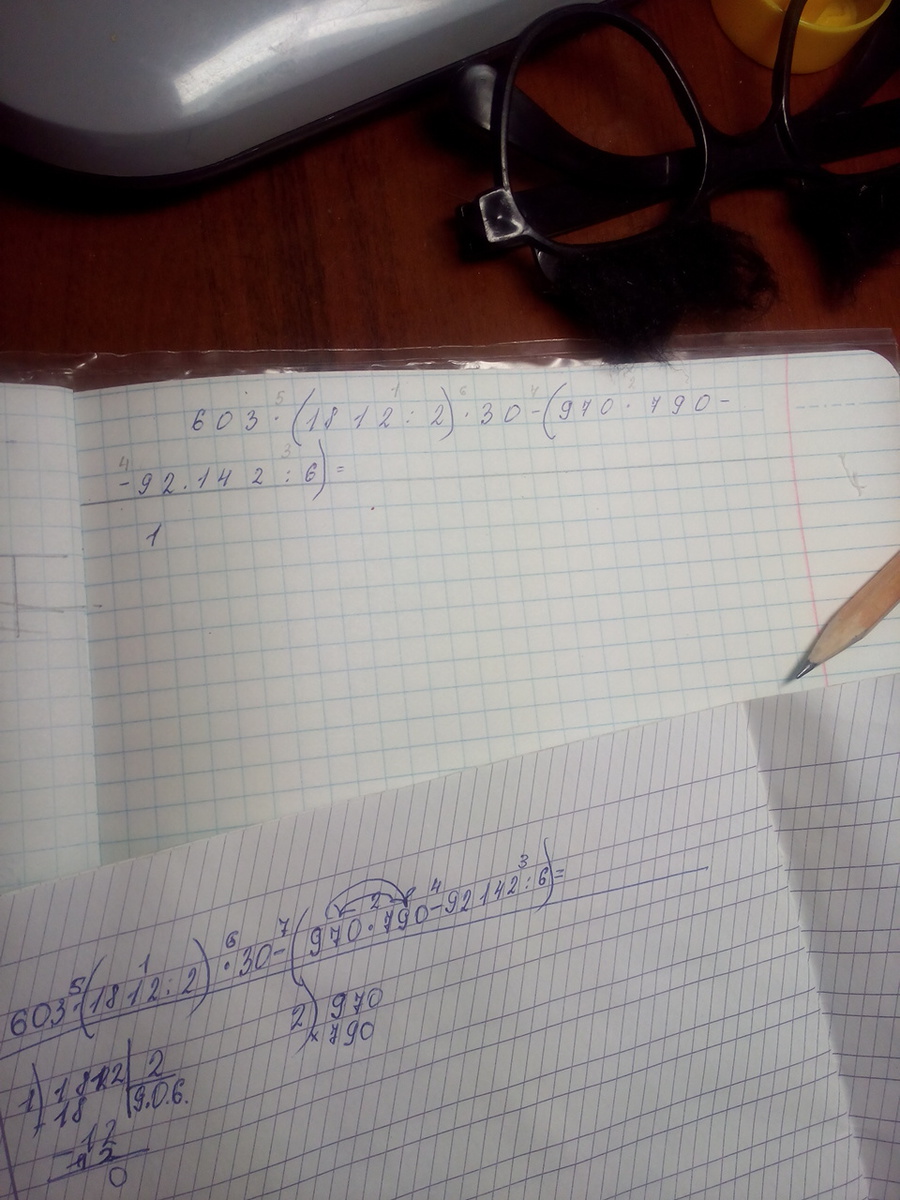 603·(1812:2)·30-(970·790-
-92.142:6)=
1
603·(1812:2)·30-(970·790-92142:6)=
1) 1812 | 2
18 | 9.0.6.
-12
12
0
2) 970
× 790